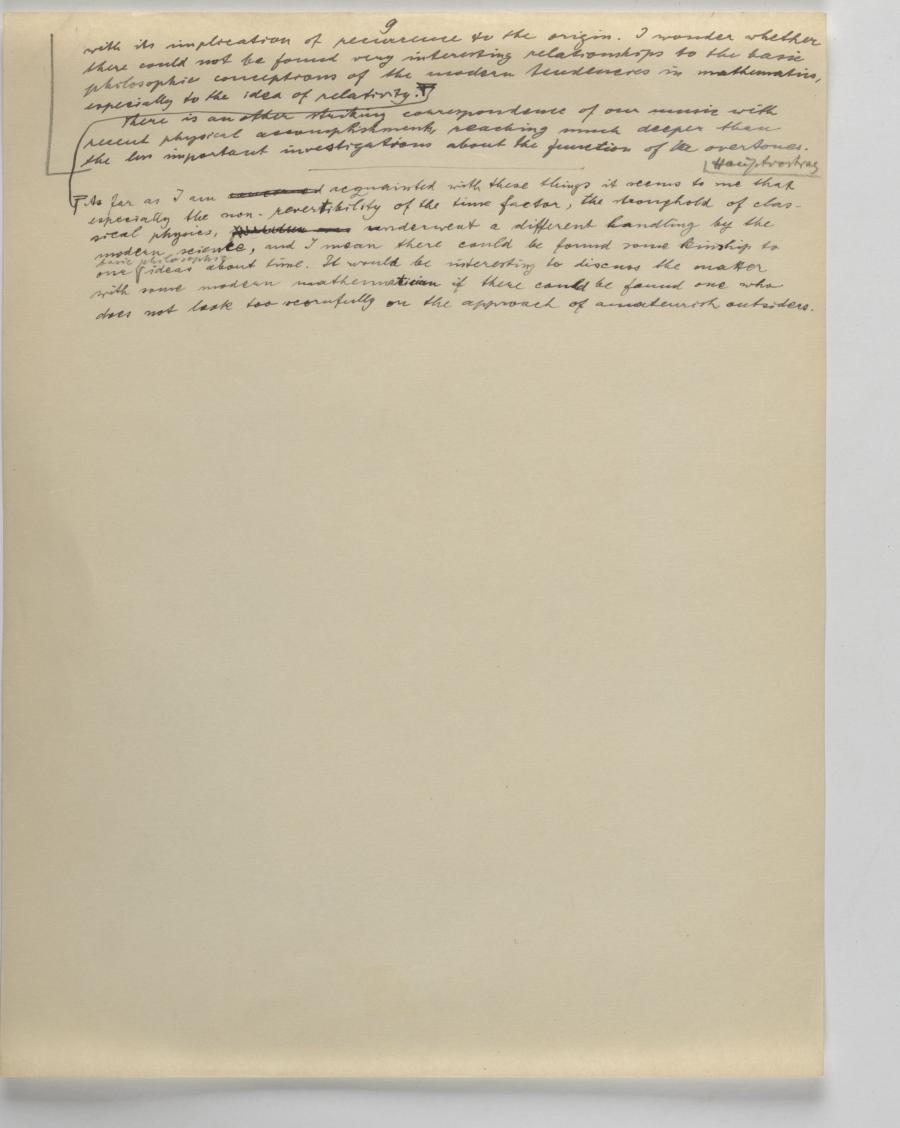 9
with its implication of recurrence to the origin. I wonder whether
there could not be found very interesting relationships to the basic
philosophic conceptions of the modern tendencies in mathematics,
especially to the idea of relativity.
There is another striking correspondence of our music with
recent physical accomplishments, reaching much deeper than
the less important investigations about the function of the overtones.
As far as I am acquainted with these things it seems to me that
especially the non-revertibility of the time factor, the stronghold of clas-
sical physics, underwent a different handling by the
modern science, and I mean there could be found some kinship to
basic philosophic
our ideas about time. It would be interesting to discuss the matter
with some modern mathematician if there could be found one who
does not look too scornfully on the approach of amateurish outsiders.